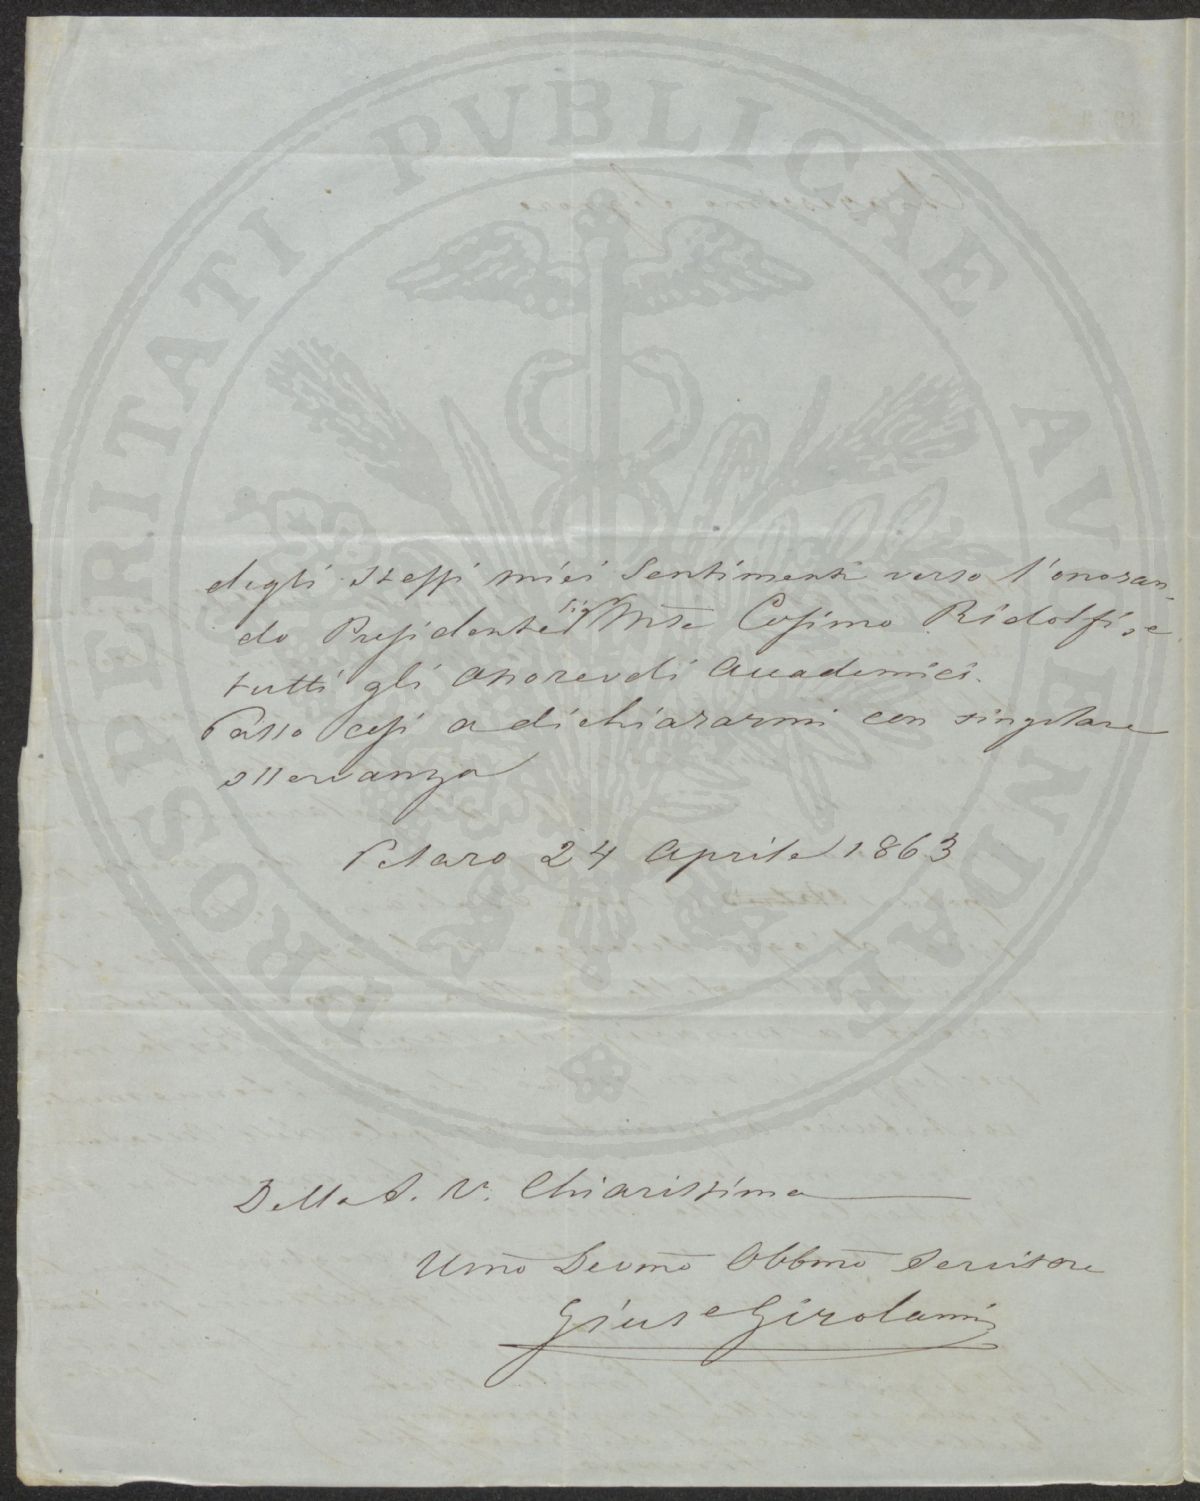 PROSPERITATI PVBLICAE AVGENDAE
degli stessi miei Sentimenti verso l'onoran-
do Presidente Sigr Mse Cosimo Ridolfi, e
tutti gli onorevoli Accademici.
Passo così a dichiararmi con singolare
osservanza
Pesaro 24 Aprile 1863
Della S. V. Chiarissima
Umo Devmo Obbmo Servitore
Giuse Girolami